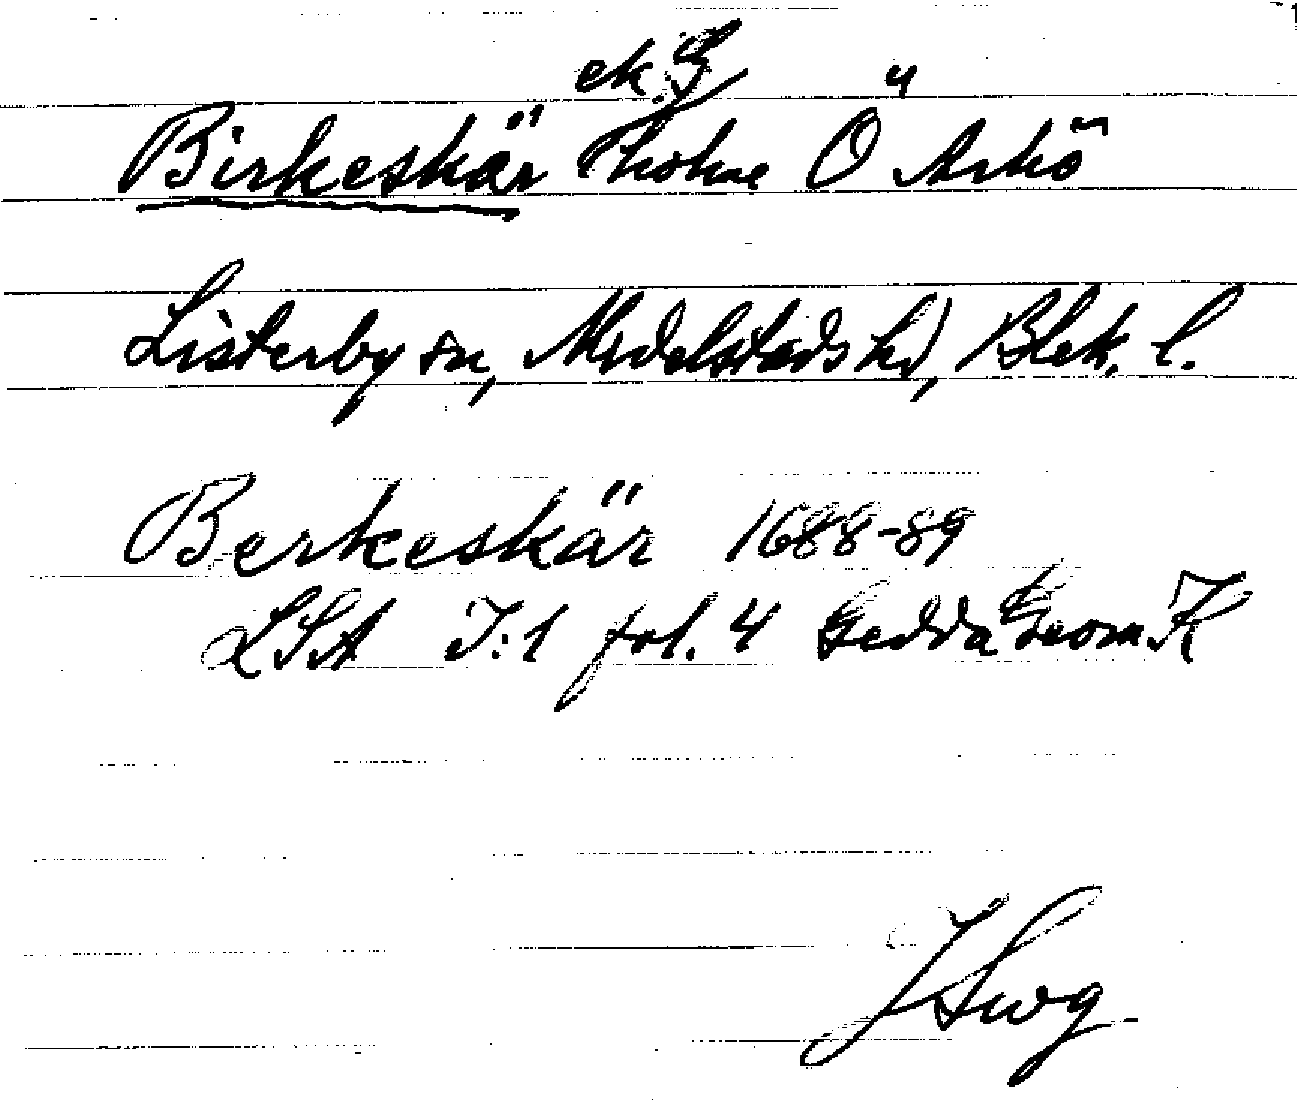 ek. S
Birkeskär holme Ö Arkö
Listerby sn, Medelstads hd, Blek. l.
Berkeskär 1688-89
LSA I:1 fol. 4 Gedda Geom K